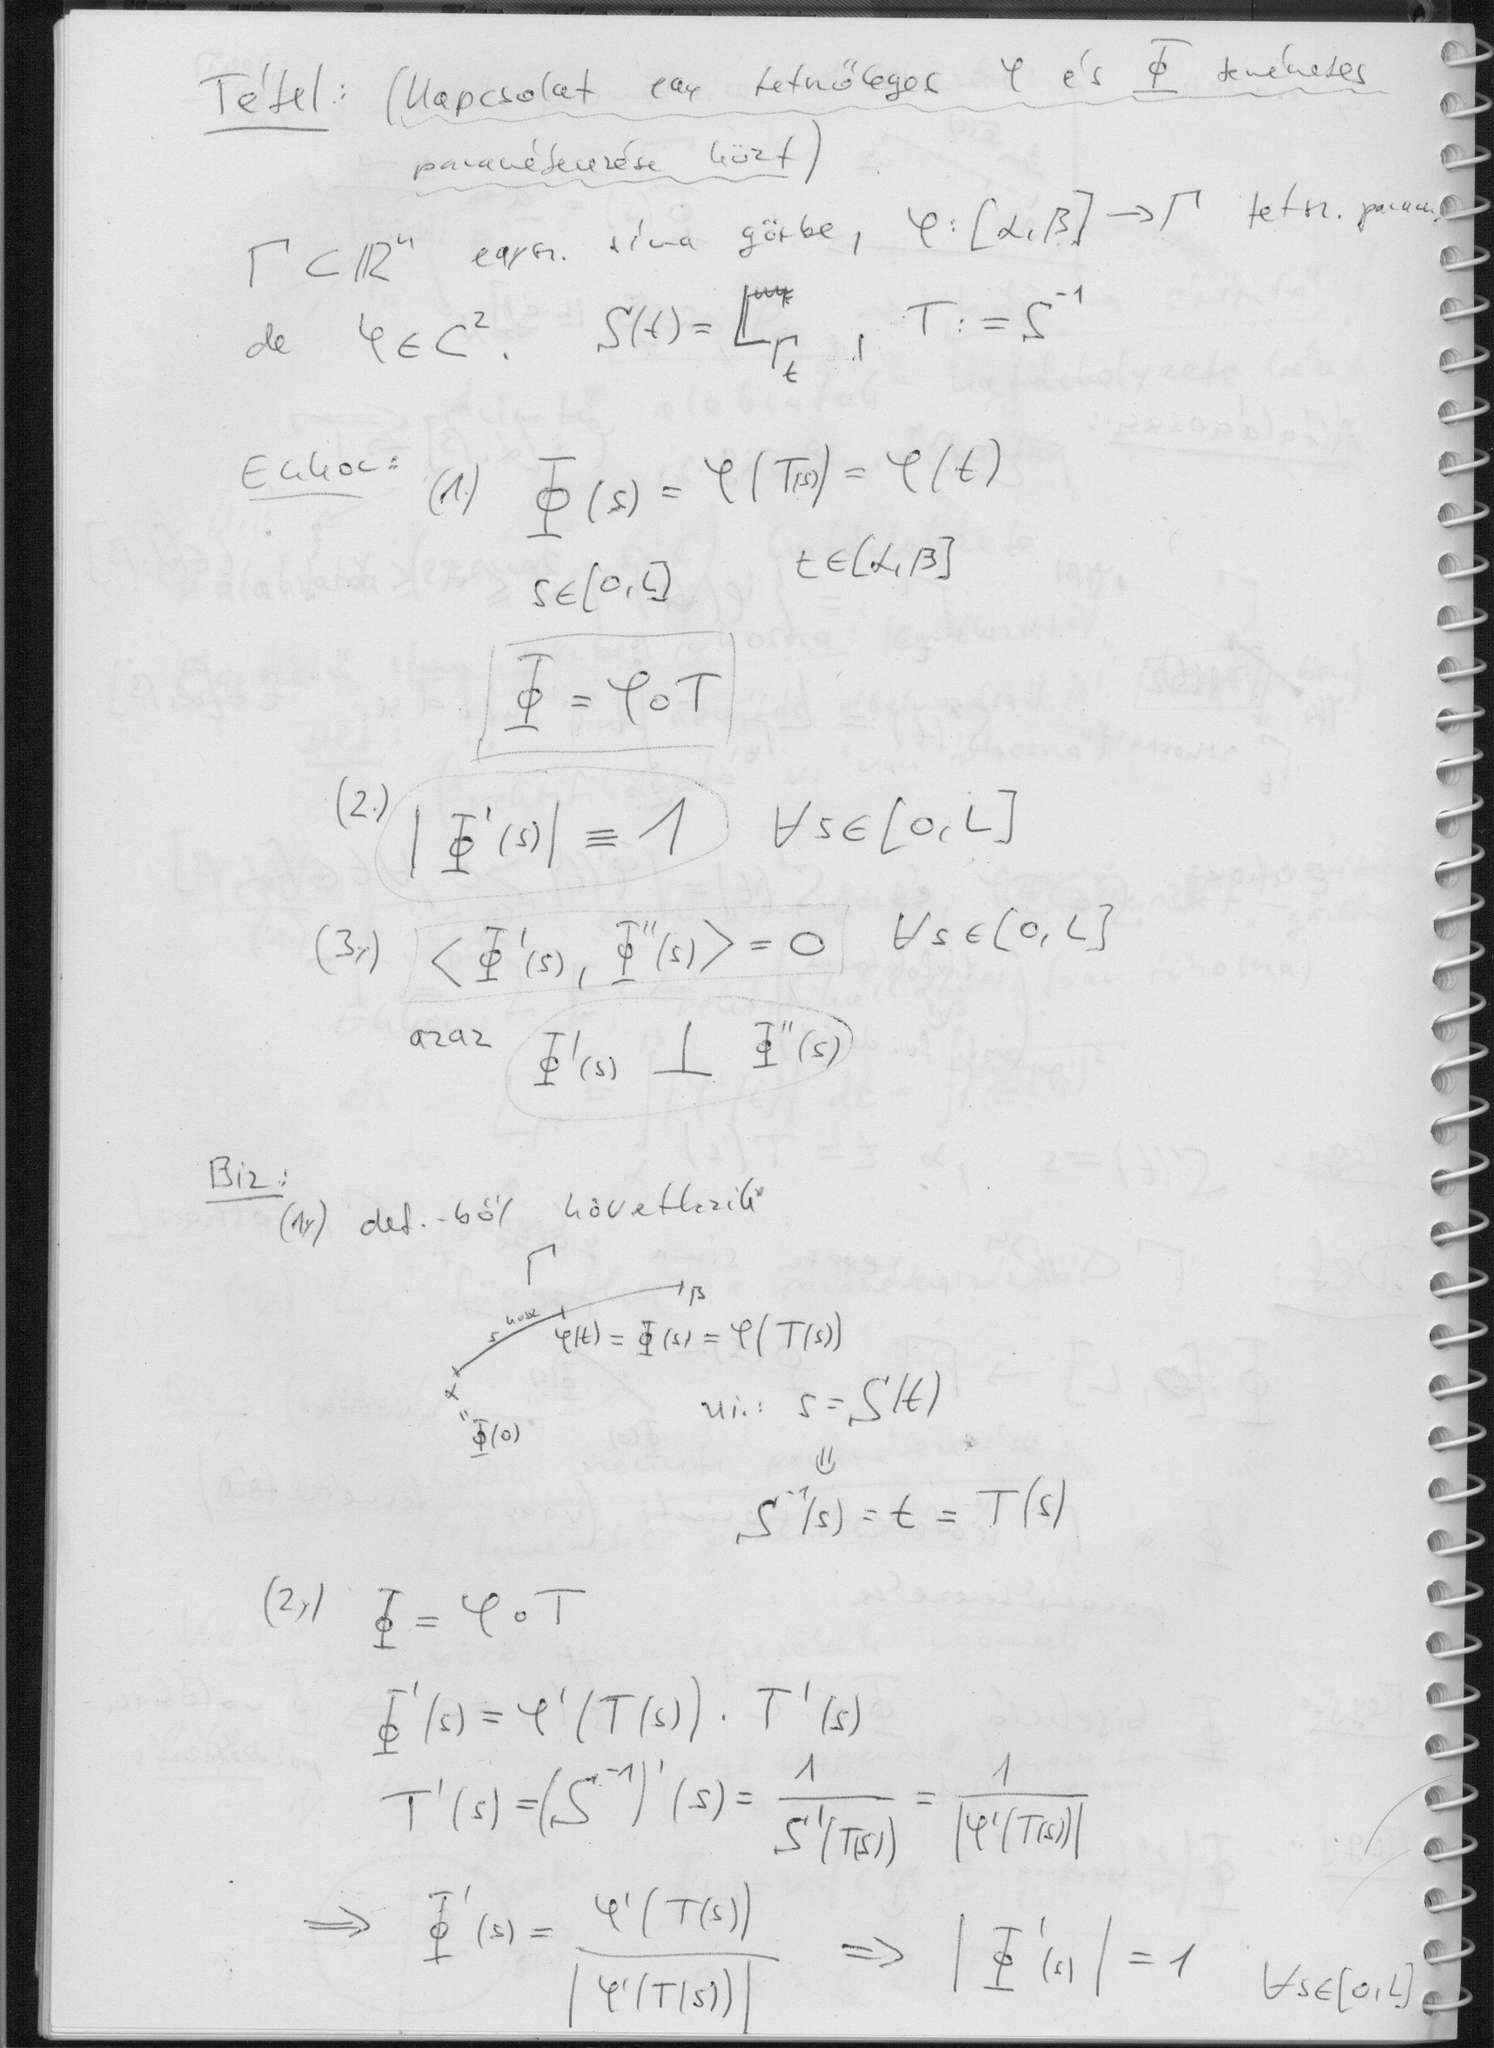 Tétel: (Kapcsolat egy tetszőleges φ és Φ természetes
paraméterezése közt)
Γ ⊂ ℝⁿ egysz. sima görbe, φ: [α, β] → Γ tetsz. param.
de φ ∈ C². S(t) = L_Γt, T := S⁻¹
Ekkor: (1.) Φ(s) = φ(T(s)) = φ(t)
s ∈ [0, L] t ∈ [α, β]
Φ = φ ∘ T
(2.) |Φ'(s)| ≡ 1 ∀s ∈ [0, L]
(3.) <Φ'(s), Φ''(s)> = 0 ∀s ∈ [0, L]
azaz Φ'(s) ⊥ Φ''(s)
Biz.:
(1.) def.-ből következik
Γ
s hossz β
φ(t) = Φ(s) = φ(T(s))
α
"Φ(0)
ui.: s = S(t)
⇓
S⁻¹(s) = t = T(s)
(2.) Φ = φ ∘ T
Φ'(s) = φ'(T(s)) · T'(s)
T'(s) = (S⁻¹)'(s) = 1/S'(T(s)) = 1/|φ'(T(s))|
⇒ Φ'(s) = φ'(T(s))/|φ'(T(s))| ⇒ |Φ'(s)| = 1 ∀s∈[0, L]